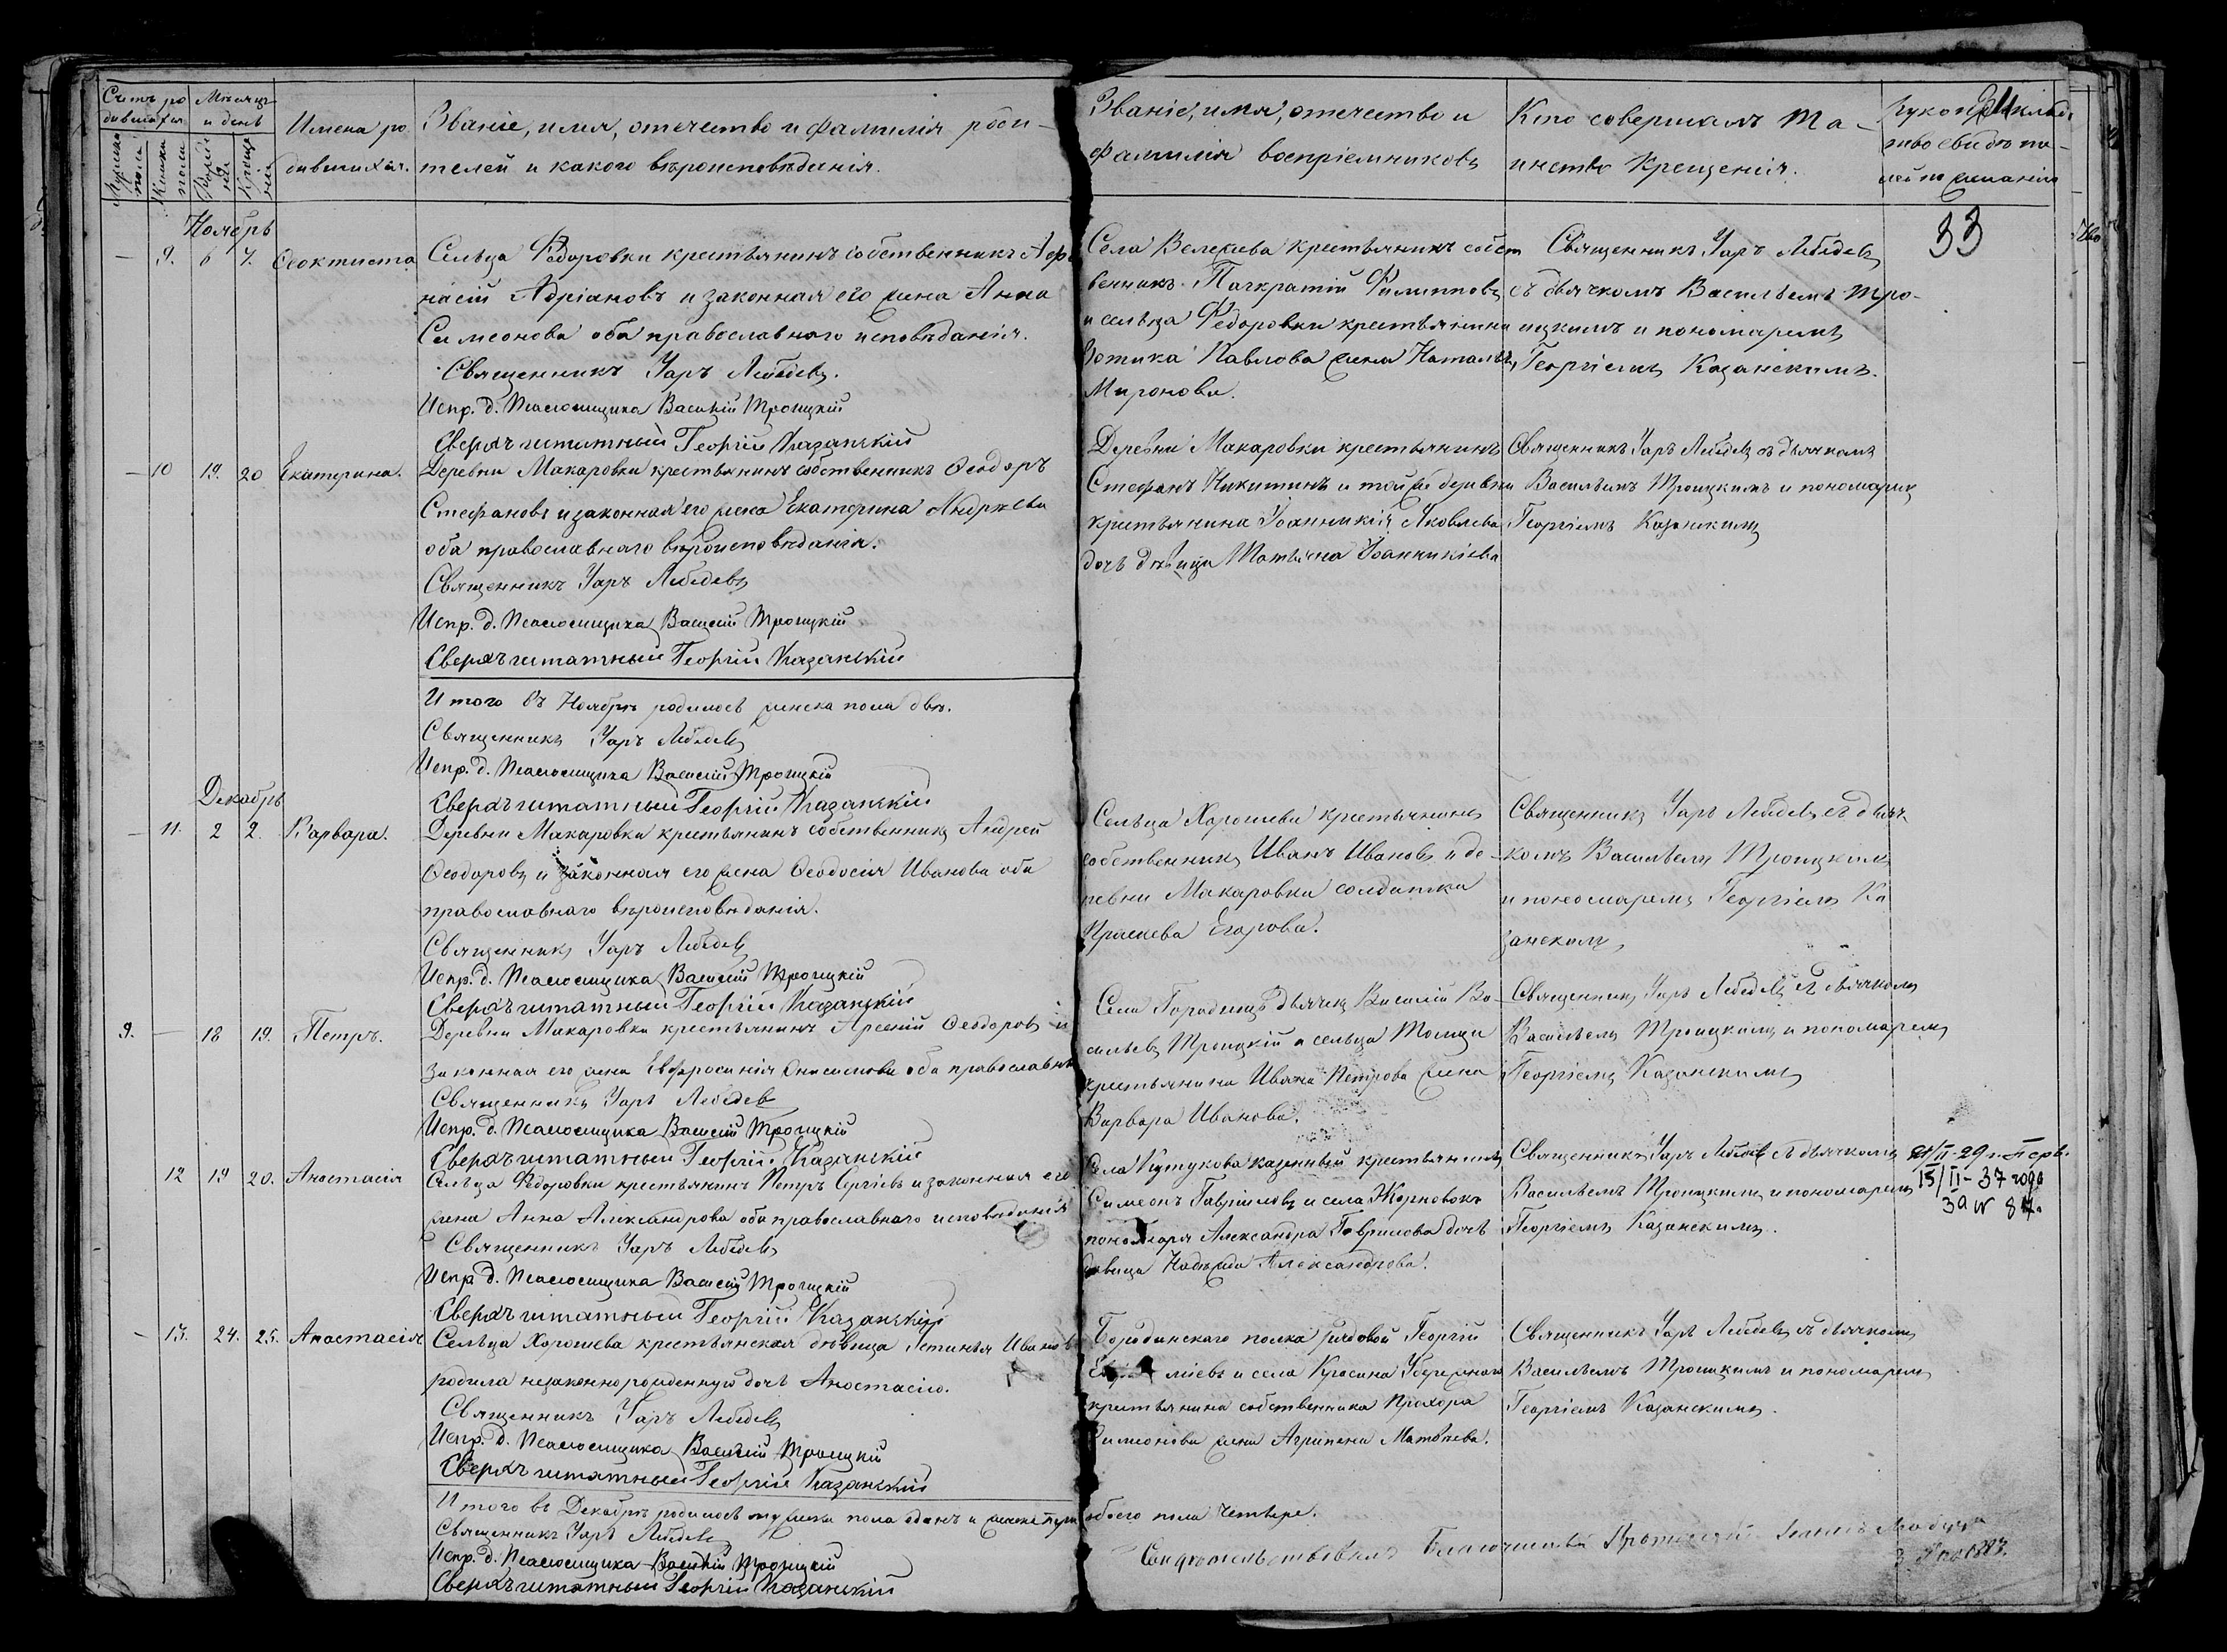 Счетъ ро
дившихся
Мѣсяцъ
и день
Мужска
пола
Женска
пола
Рожде
нія
Креще
нія
Имена ро
дившихся.
Званіе, имя, отечество и фамилія роди-
телей и какого вѣроисповѣданія.
Званіе, имя, отечество и
фамилія воспріемниковъ
Кто совершалъ та-
инство крещенія.
Рукоприклад
ство свидѣте-
лей по желанію
33
Ноябрь
— 9. 6 7. Ѳеоктиста
Сельца Ѳедоровки крестьянинъ собственникъ Аѳа
насій Адріановъ и законная его жена Анна
Симеонова оба православнаго исповѣданія.
Священникъ Уаръ Лебедевъ.
Испр. д. Псаломщика Василій Троицкій
Сверхъштатный Георгій Казанскій
Села Велекева крестьянинъ собст
венникъ Панкратій Филипповъ
и сельца Ѳедоровки крестьянина
Зотика Павлова жена Наталья
Миронова.
Священникъ Уаръ Лебедевъ
съ дьячкомъ Васильемъ Тро-
ицкимъ и пономаремъ
Георгіемъ Казанскимъ.
— 10 19. 20 Екатерина.
Деревни Макаровки крестьянинъ собственникъ Ѳеодоръ
Стефановъ и законная его жена Екатерина Андреева
оба православнаго вѣроисповѣданія.
Священникъ Уаръ Лебедевъ
Испр. д. Псаломщика Василій Троицкій
Сверхъштатный Георгій Казанскій
Деревни Макаровки крестьянинъ
Стефанъ Никитинъ и той же деревни
крестьянина Іоанникія Яковлева
дочь дѣвица Татьяна Іоанникіева
Священникъ Уаръ Лебедевъ съ дьячкомъ
Васильемъ Троицкимъ и пономаремъ
Георгіемъ Казанскимъ
Итого въ Ноябрѣ родилось женска пола двѣ.
Священникъ Уаръ Лебедевъ
Испр. д. Псаломщика Василій Троицкій
Сверхъштатный Георгій Казанскій
Декабрь
— 11. 2 2. Варвара.
Деревни Макаровки крестьянинъ собственникъ Андрей
Ѳеодоровъ и законная его жена Ѳеодосія Иванова оба
православнаго вѣроисповѣданія.
Священникъ Уаръ Лебедевъ
Испр. д. Псаломщика Василій Троицкій
Сверхъштатный Георгій Казанскій
Сельца Хорошева крестьянинъ
собственникъ Иванъ Ивановъ и де-
ревни Макаровки солдатка
Праскева Егорова.
Священникъ Уаръ Лебедевъ съ дьяч-
комъ Васильемъ Троицкимъ
и пономаремъ Георгіемъ Ка
занскимъ,
9. — 18 19. Петръ.
Деревни Макаровки крестьянинъ Арсеній Ѳеодоровъ и
законная его жена Евфросинія Анисимова оба православн
Священникъ Уаръ Лебедев
Испр. д. Псаломщика Василій Троицкій
Сверхъштатный Георгій Казанскій
Села Городищъ дьячекъ Василій Ва-
сильевъ Троицкій и сельца
крестьянина Ивана Петрова жена
Варвара Иванова.
Священникъ Уаръ Лебедевъ съ дьячкомъ
Васильемъ Троицкимъ и пономаремъ
Георгіемъ Казанскимъ
12 19 20. Анастасія
Сельца Ѳедоровки крестьянинъ Петръ Сергѣевъ и законная его
жена Анна Александрова оба православнаго исповѣданія
Священникъ Уаръ Лебедевъ
Испр д. Псаломщика Василій Троицкій
Сверхъштатный Георгій Казанскій
Села Кутукова казенный крестьянинъ
Симеонъ Гавріиловъ и села Жерновокъ
пономаря Александра Гаврилова дочь
дѣвица Надежда Александрова.
Священникъ Уаръ Лебедевъ съ дьячкомъ
Васильемъ Троицкимъ и пономаремъ
Георгіемъ Казанскимъ.
21/II-29 г. перв.
15/II-37 года
за № 87.
— 13. 24. 25. Анастасія
Сельца Хорошева крестьянская дѣвица Устинья Иванов
родила незаконнорожденную дочь Анастасію.
Священникъ Уаръ Лебедевъ
Испр. д. Псаломщика Василій Троицкій
Сверхъштатный Георгій Казанскій
Бородинскаго полка рядовой Георгій
и села Убережнаго
крестьянина собственника Прохора
Симионова жена Агрипена Матвѣева.
Священникъ Уаръ Лебедевъ съ дьячкомъ
Васильемъ Троицкимъ и пономаремъ
Георгіемъ Казанскимъ.
Итого въ Декабрѣ родилось мужска пола одинъ и женска три
обоего пола четверо.
Священникъ Уаръ Лебедевъ
Испр. д. Псаломщика Василій Троицкій
Сверхъштатный Георгій Казанскій
Свидѣтельствовалъ Благочинный